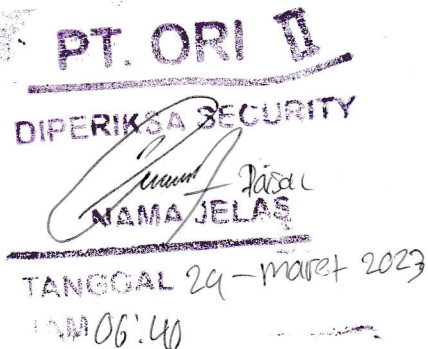 PT. ORI II
DIPERIKSA SECURITY
NAMA JELAS
TANGGAL 29-maret 2023
JAM 06:40